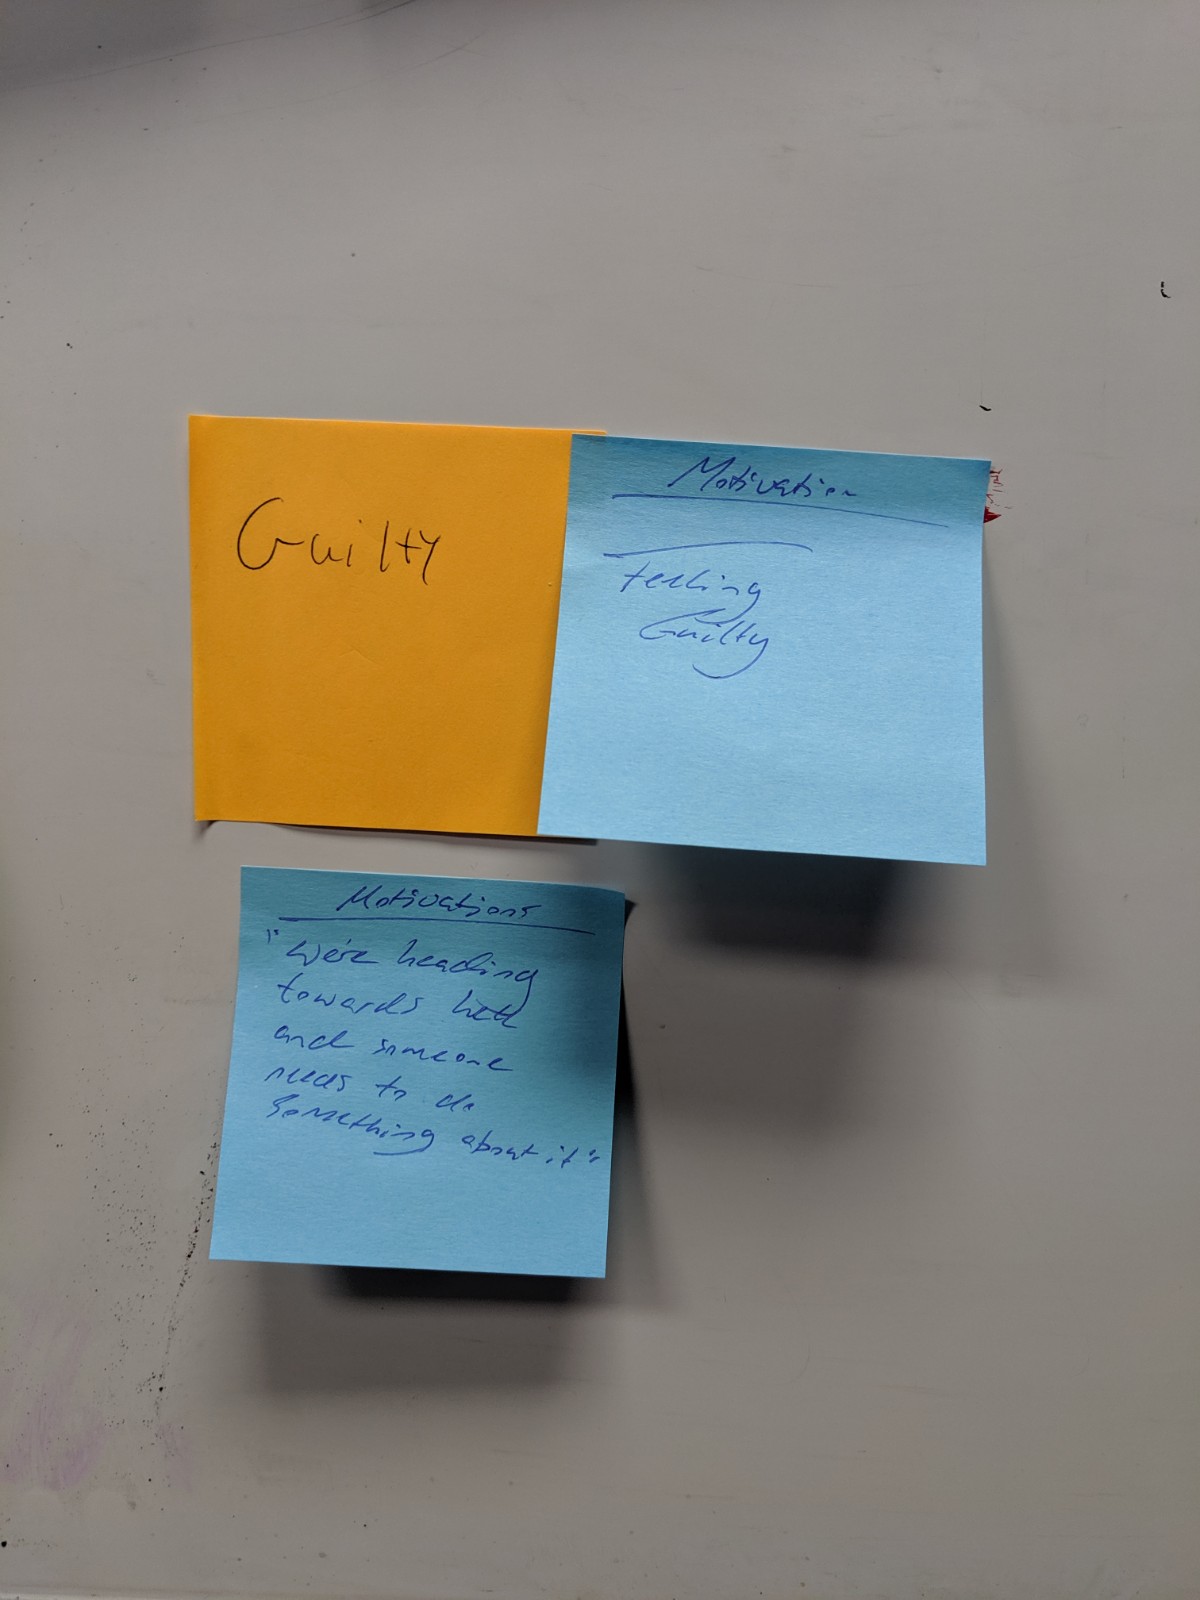 Guilty
Motivation
Feeling
Guilty
Motivations
"We're heading
towards hell
and someone
needs to do
something about it"